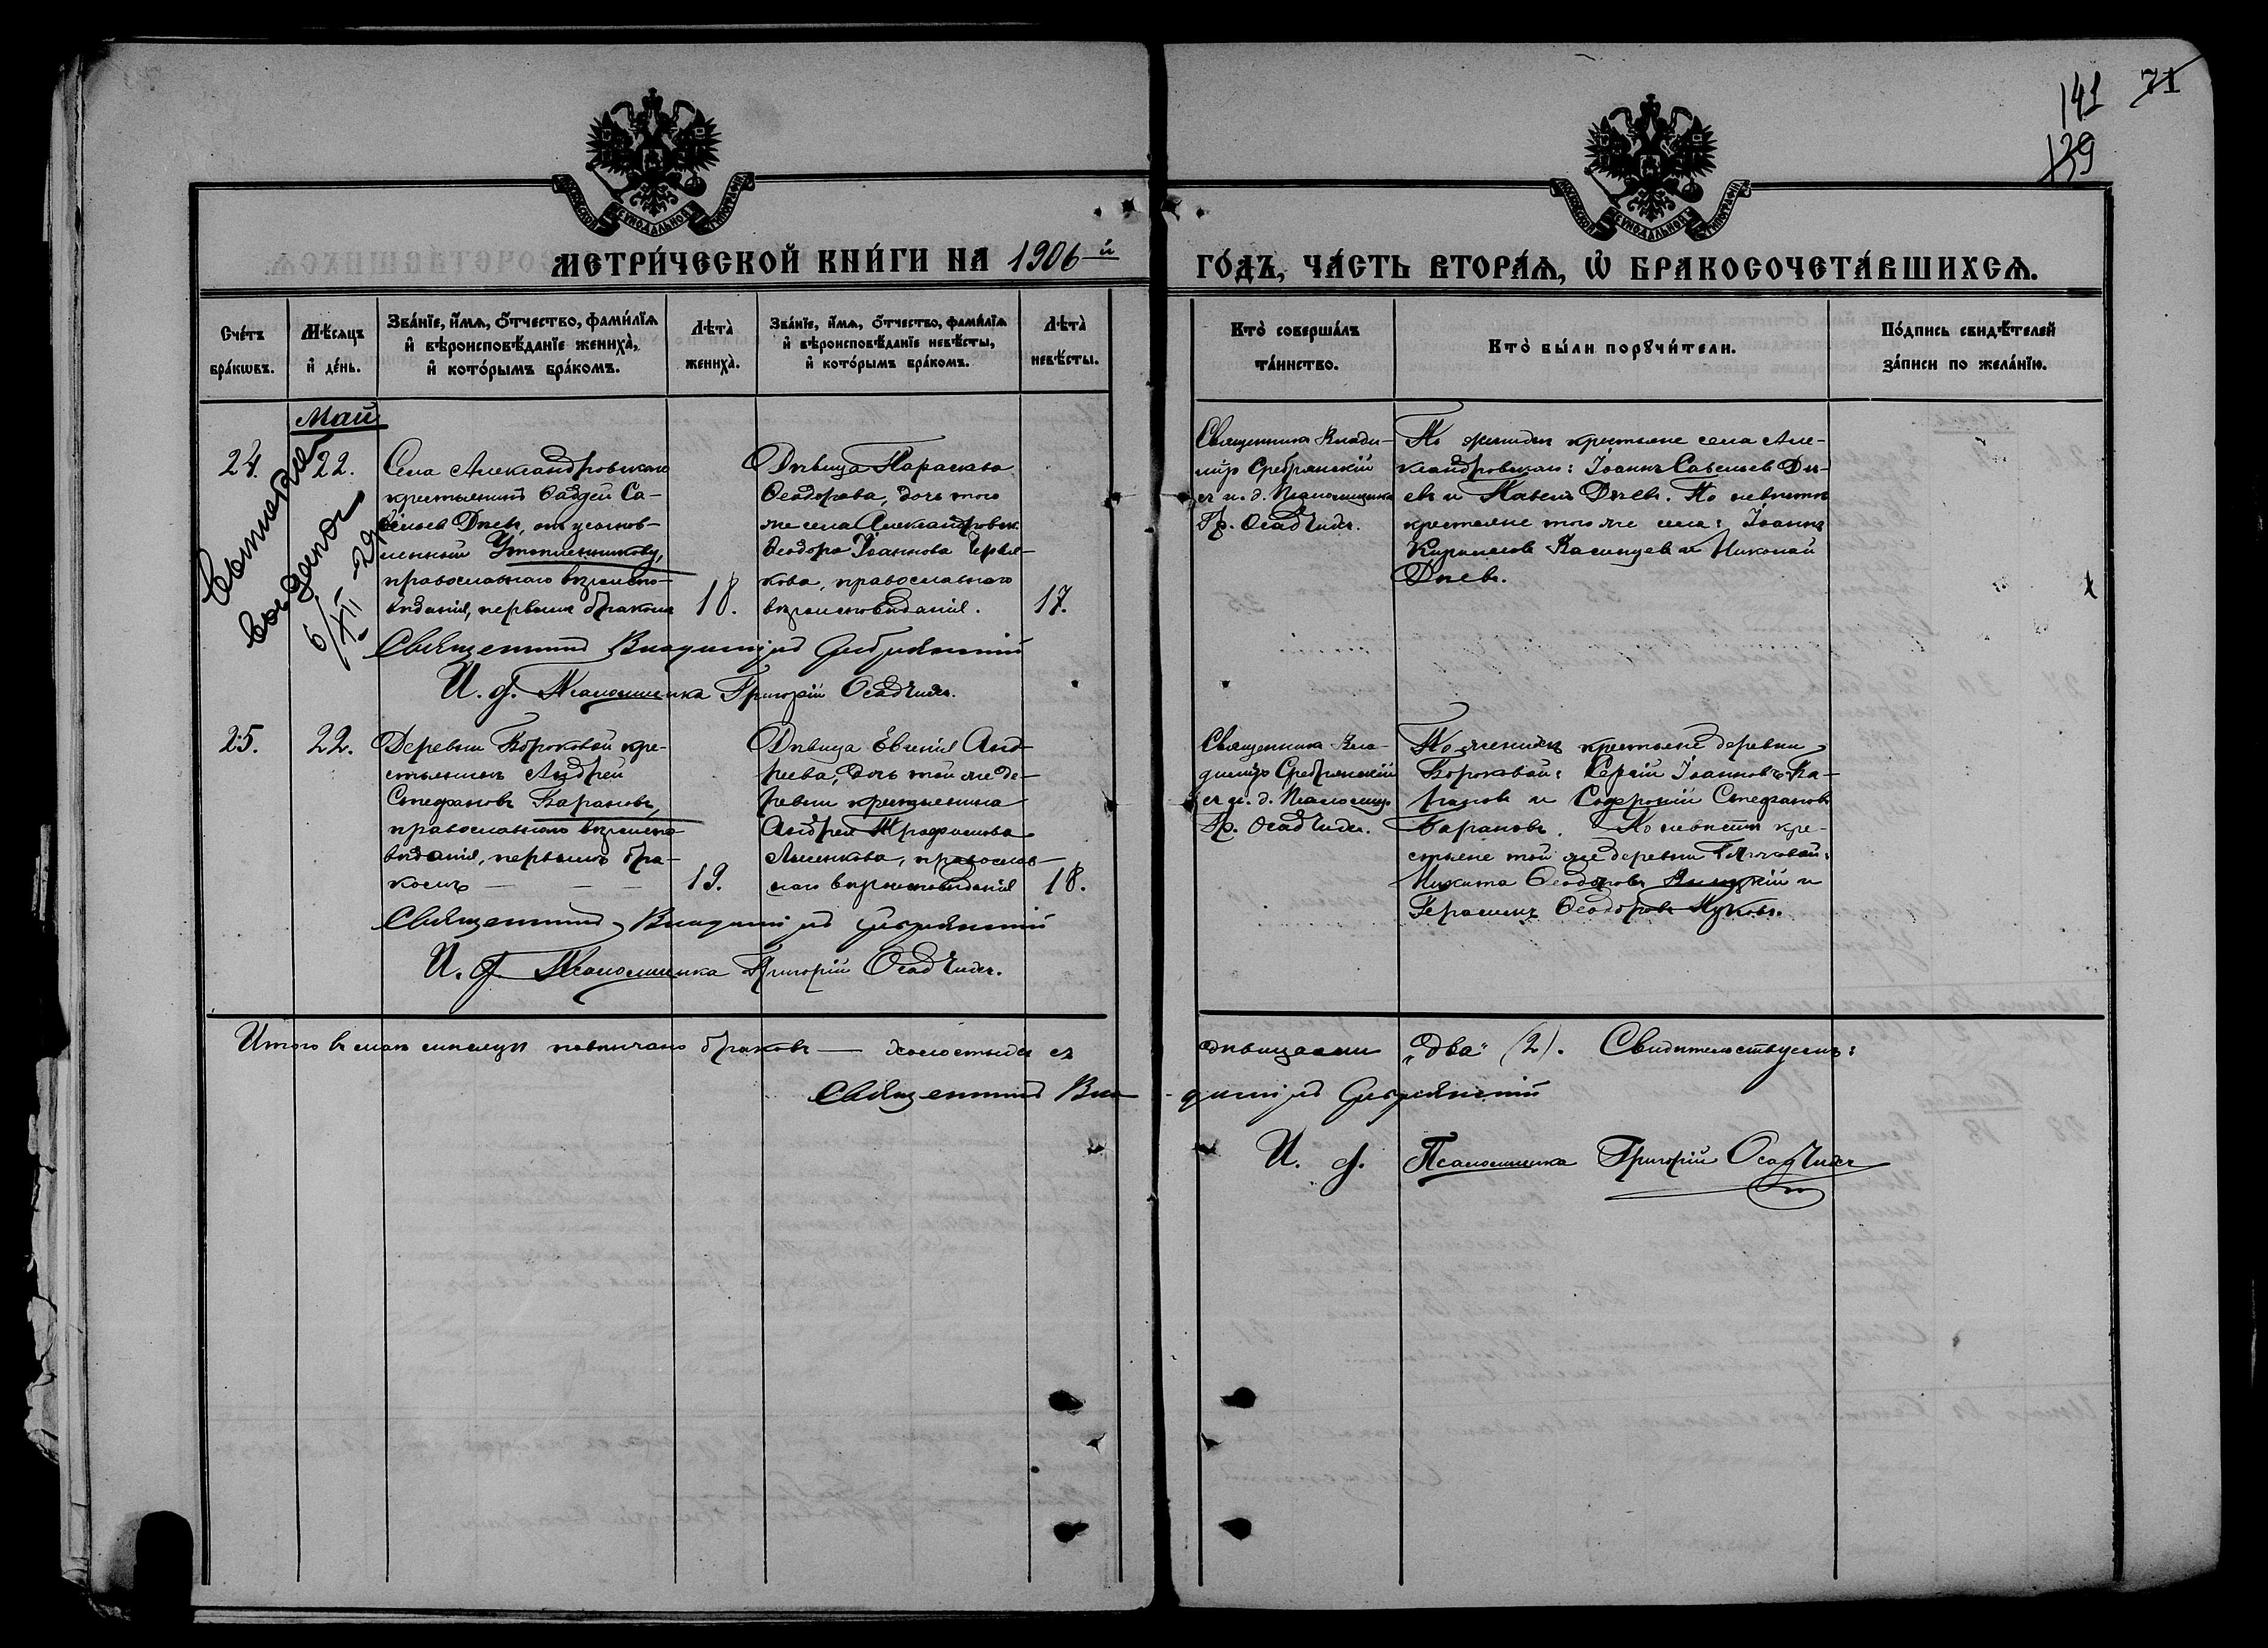 141 71
139
МОСКОВСКОЙ СѴНОДАЛЬНОЙ ТИПОГРАФІИ
МОСКОВСКОЙ СѴНОДАЛЬНОЙ ТИПОГРАФІИ
МЕТРИ́ЧЕСКОЙ КНИ́ГИ НА 1906-й
ГО́ДЪ, ЧА́СТЬ ВТОРА́Ѧ, Ѡ҆ БРАКОСОЧЕТА́ВШИХСѦ.
Сче́тъ
бра́кѡвъ.
Мѣ́сѧцъ
и҆ де́нь.
Зва́нїе, и҆́мѧ, ѻ҆́тчество, фами́лїѧ
и҆ вѣроисповѣ́данїе жениха̀,
и҆ кото́рымъ бра́комъ.
Лѣта̀
жениха̀.
Зва́нїе, и҆́мѧ, ѻ҆́тчество, фами́лїѧ
и҆ вѣроисповѣ́данїе невѣ́сты,
и҆ кото́рымъ бра́комъ.
Лѣта̀
невѣ́сты.
Кто̀ соверша́лъ
та́инство.
Кто̀ бы́ли порꙋчи́тели.
По́дпись свидѣ́телей
за́писи по жела́нїю.
Май
24.
22.
Села Александровскаго
крестьянинъ Фаддей Са-
вельев Дневъ, он усынов-
ленный
православнаго вѣроиспо-
вѣданія, первымъ бракомъ
18.
Дѣвица Параскева
Ѳеодорова, дочь того
же села Александровск.
Ѳеодора Іоаннова Червя-
кова, православнаго
вѣроисповѣданія.
17.
Священникъ Влади-
міръ Сребрянскій
съ и. д. Псаломщика
Гр. Осадчихъ.
По женихѣ крестьяне села Але-
ксандровскаго: Іоаннъ Савельевъ Дн-
евъ и Павелъ Дневъ. По невѣстѣ
крестьяне того же села: Іоаннъ
Кирилловъ и Николай
Дневъ.
6/XII-29
Священникъ Владиміръ Сребрянскій
И. д. Псаломщика Григорій Осадчихъ.
25.
22.
Деревни Боровой кре-
стьянинъ Андрей
Стефановъ Барановъ,
православнаго вѣроиспо-
вѣданія, первымъ бра-
комъ
19.
Дѣвица Евгенія Анд-
реева, дочь той же де-
ревни крестьянина
Андрея Трофимова
православ-
наго вѣроисповѣданія
18.
Священникъ Вла-
диміръ Сребрянскій
съ и. д. Псаломщ.
Гр. Осадчихъ.
По женихѣ крестьяне деревни
Боровой: Сергій Іоанновъ Ба-
рановъ и Софроній Стефановъ
Барановъ. По невѣстѣ кре-
стьяне той же деревни
Никита Ѳеодоровъ и
Герасимъ Ѳеодоровъ Жуковъ.
Священникъ Владиміръ Сребрянскій
И. д. Псаломщика Григорій Осадчихъ.
Итого въ маѣ мѣсяцѣ повѣнчано браковъ — холостыхъ съ
дѣвицами „два" (2). Свидѣтельствуемъ:
Священникъ Вла-
диміръ Сребрянскій
И. д. Псаломщика Григорій Осадчихъ